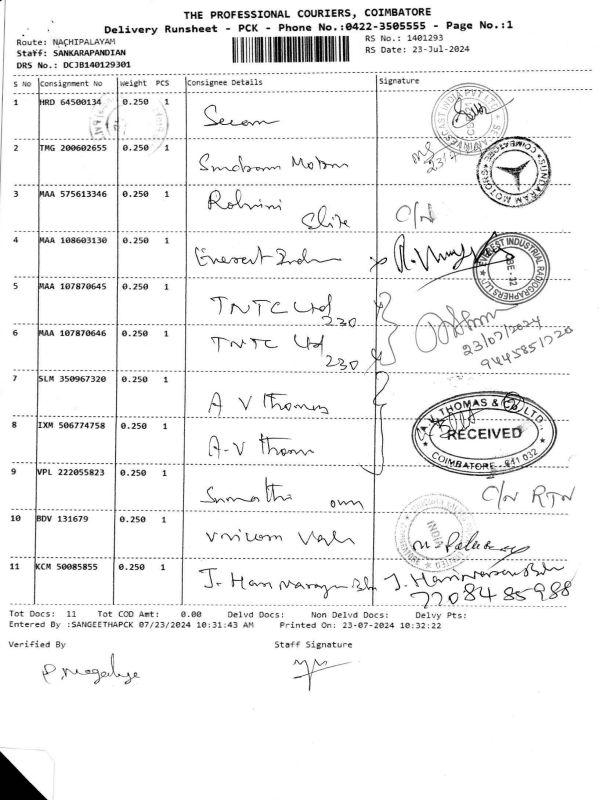 THE PROFESSIONAL COURIERS, COIMBATORE
Delivery Runsheet - PCK - Phone No.:0422-3505555 - Page No.:1
Route: NACHIPALAYAM
RS No.: 1401293
Staff: SANKARAPANDIAN
RS Date: 23-Jul-2024
DRS No.: DCJB140129301
S No Consignment No Weight PCS Consignee Details Signature
1 HRD 64500134 0.250 1
2 TMG 200602655 0.250 1 Sundaram Motors
SUNDARAM MOTORS COIMBATORE
3 MAA 575613346 0.250 1 Rohini Elite C/N
4 MAA 108603130 0.250 1 Everest Indu
EVEREST INDUSTRIAL RADIOGRAPHERS LLP CBE-32
5 MAA 107870645 0.250 1 TNTC Ltd 230
6 MAA 107870646 0.250 1 TNTC Ltd 230
23/07/2024
7 SLM 350967320 0.250 1 A V Thomas
8 IXM 506774758 0.250 1 A-V Thom
A.V. THOMAS & CO LTD.
RECEIVED
COIMBATORE - 641 032
9 VPL 222055823 0.250 1 Sumathi own C/N RTN
10 BDV 131679 0.250 1
INDIA
11 KCM 50085855 0.250 1
7708485988
Tot Docs: 11 Tot COD Amt: 0.00 Delvd Docs: Non Delvd Docs: Delvy Pts:
Entered By :SANGEETHAPCK 07/23/2024 10:31:43 AM Printed On: 23-07-2024 10:32:22
Verified By Staff Signature